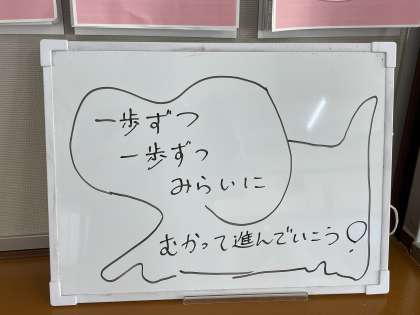 一歩ずつ
一歩ずつ
みらいに
むかって進んでいこう!